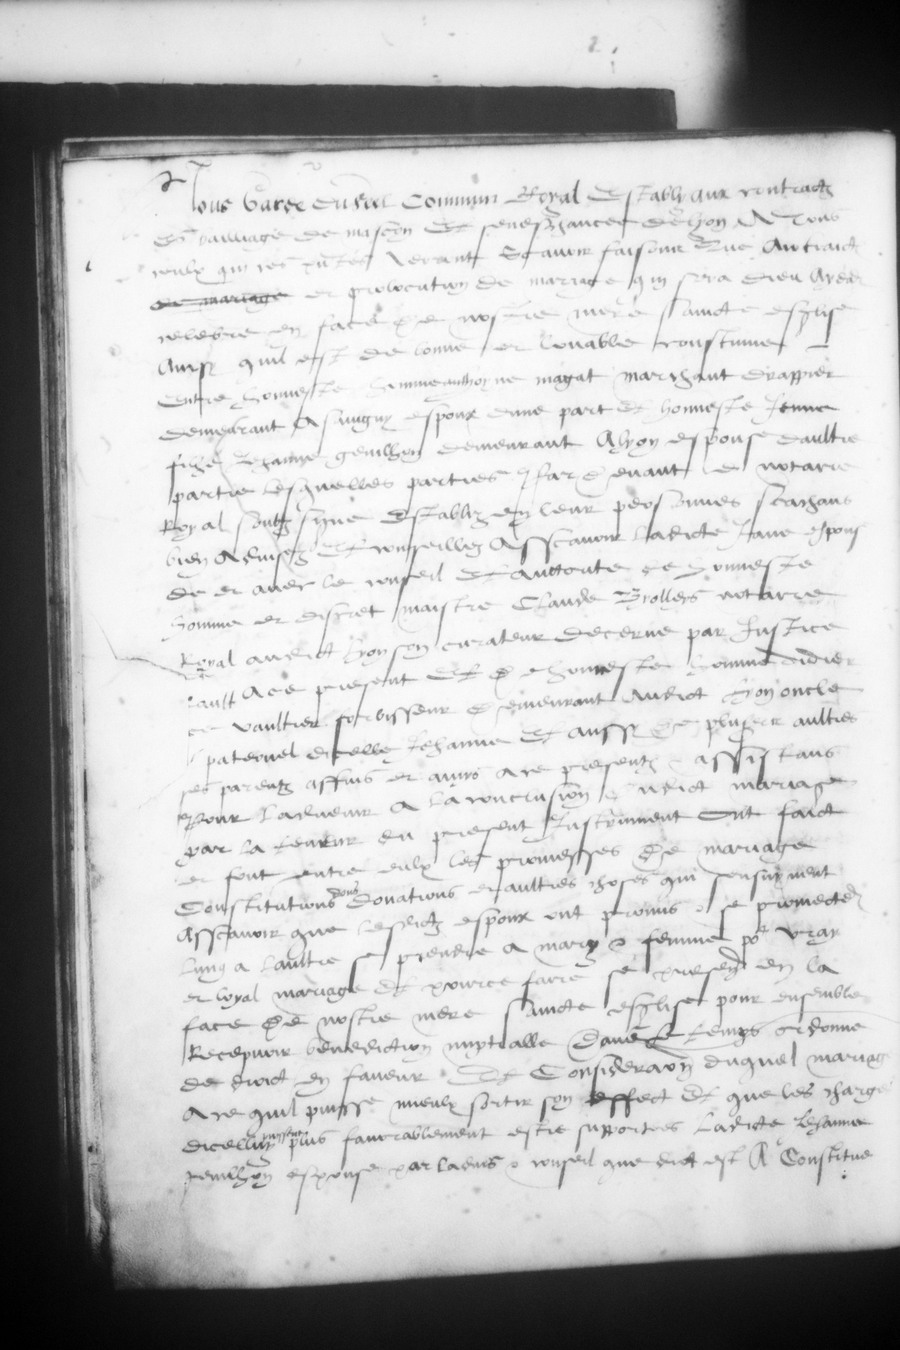 Nous Garde du seel Commun Royal estably aux contractz
de bailliage de mascon et seneschaucee de lyon A Tous
ceulx qui ces pntes verront scavoir faisons Que Au traicté
de mariage et prolocution de mariage qui sera dieu Aydant
celebre en face de nostre mere saincte esglise
Ainsi quil est de bonne et louable coustume
Entre honneste homme anthoyne magat marchant drappier
demeurant A savigny espoux dune part et honneste Jenne
fille Jehanne gemilhon demeurant A lyon espouse daultre
partie lesquelles parties par devant le notaire
Royal soubz signe establiz en leur personnes scachans
bien advisez et conseillez Asscavoir ladicte Jane espouse
de et avec le conseil et auctorite de honneste
homme et discret maistre Claude Brollers notaire
Royal audict lyon son curateur decerne par Justice
quant A ce present et de honneste homme didier
de vaultier forbisseur demeurant audict lyon oncle
paternel dicelle Jehanne et aussi de plusieurs aultres
ses parentz affins et amys A ce presentz & assistans
Pour ladvenir A la conclusion dudict mariage
par la teneur du present Instrument Ont faict
et font entre eulx les promesses de mariage
Constitutions dons Donations et aultres choses qui sensuyvent
Asscavoir que lesdictz espoux ont promis & se promectent
lung a laultre se prendre A mary & femme por vray
et loyal mariage et pource faire se presenter en la
face de nostre mere saincte esglise pour ensemble
Recepvoir benediction nuptialle Dans le temps ordonne
de droict en faveur Et Consideraon duquel mariage
A ce quil puisse mieulx sortir son effect et que les charges
dicelluy puissent plus favorablement estre supportees Ladicte Jehanne
gemilhon espouse par ladvis & conseil que dict est A Constitue